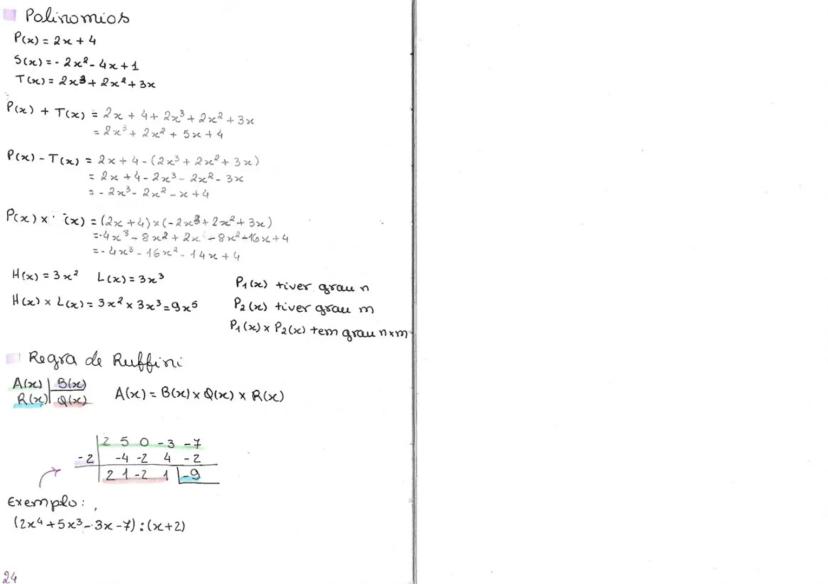 Polinomios
P(x) = 2x + 4
S(x) = - 2x² - 4x + 1
T(x) = 2x³ + 2x² + 3x
P(x) + T(x) = 2x + 4 + 2x³ + 2x² + 3x
= 2x³ + 2x² + 5x + 4
P(x) - T(x) = 2x + 4 - (2x³ + 2x² + 3x)
= 2x + 4 - 2x³ - 2x² - 3x
= - 2x³ - 2x² - x + 4
P(x) x (x) = (2x + 4) x (-2x³ + 2x² + 3x)
= -4x³ - 8x² + 2x - 8x² - 16x + 4
= - 4x³ - 16x² - 14x + 4
H(x) = 3x² L(x) = 3x³
H(x) x L(x) = 3x² x 3x³ = 9x⁵
P₁(x) tiver grau n
P₂(x) tiver grau m
P₁(x) x P₂(x) tem grau n x m
Regra de Ruffini
A(x) | B(x)
R(x) | Q(x)
A(x) = B(x) x Q(x) x R(x)
2 5 0 -3 -7
-2 | -4 -2 4 -2
2 1 -2 1 | -9
Exemplo:
(2x⁴ + 5x³ - 3x - 7) : (x + 2)
24